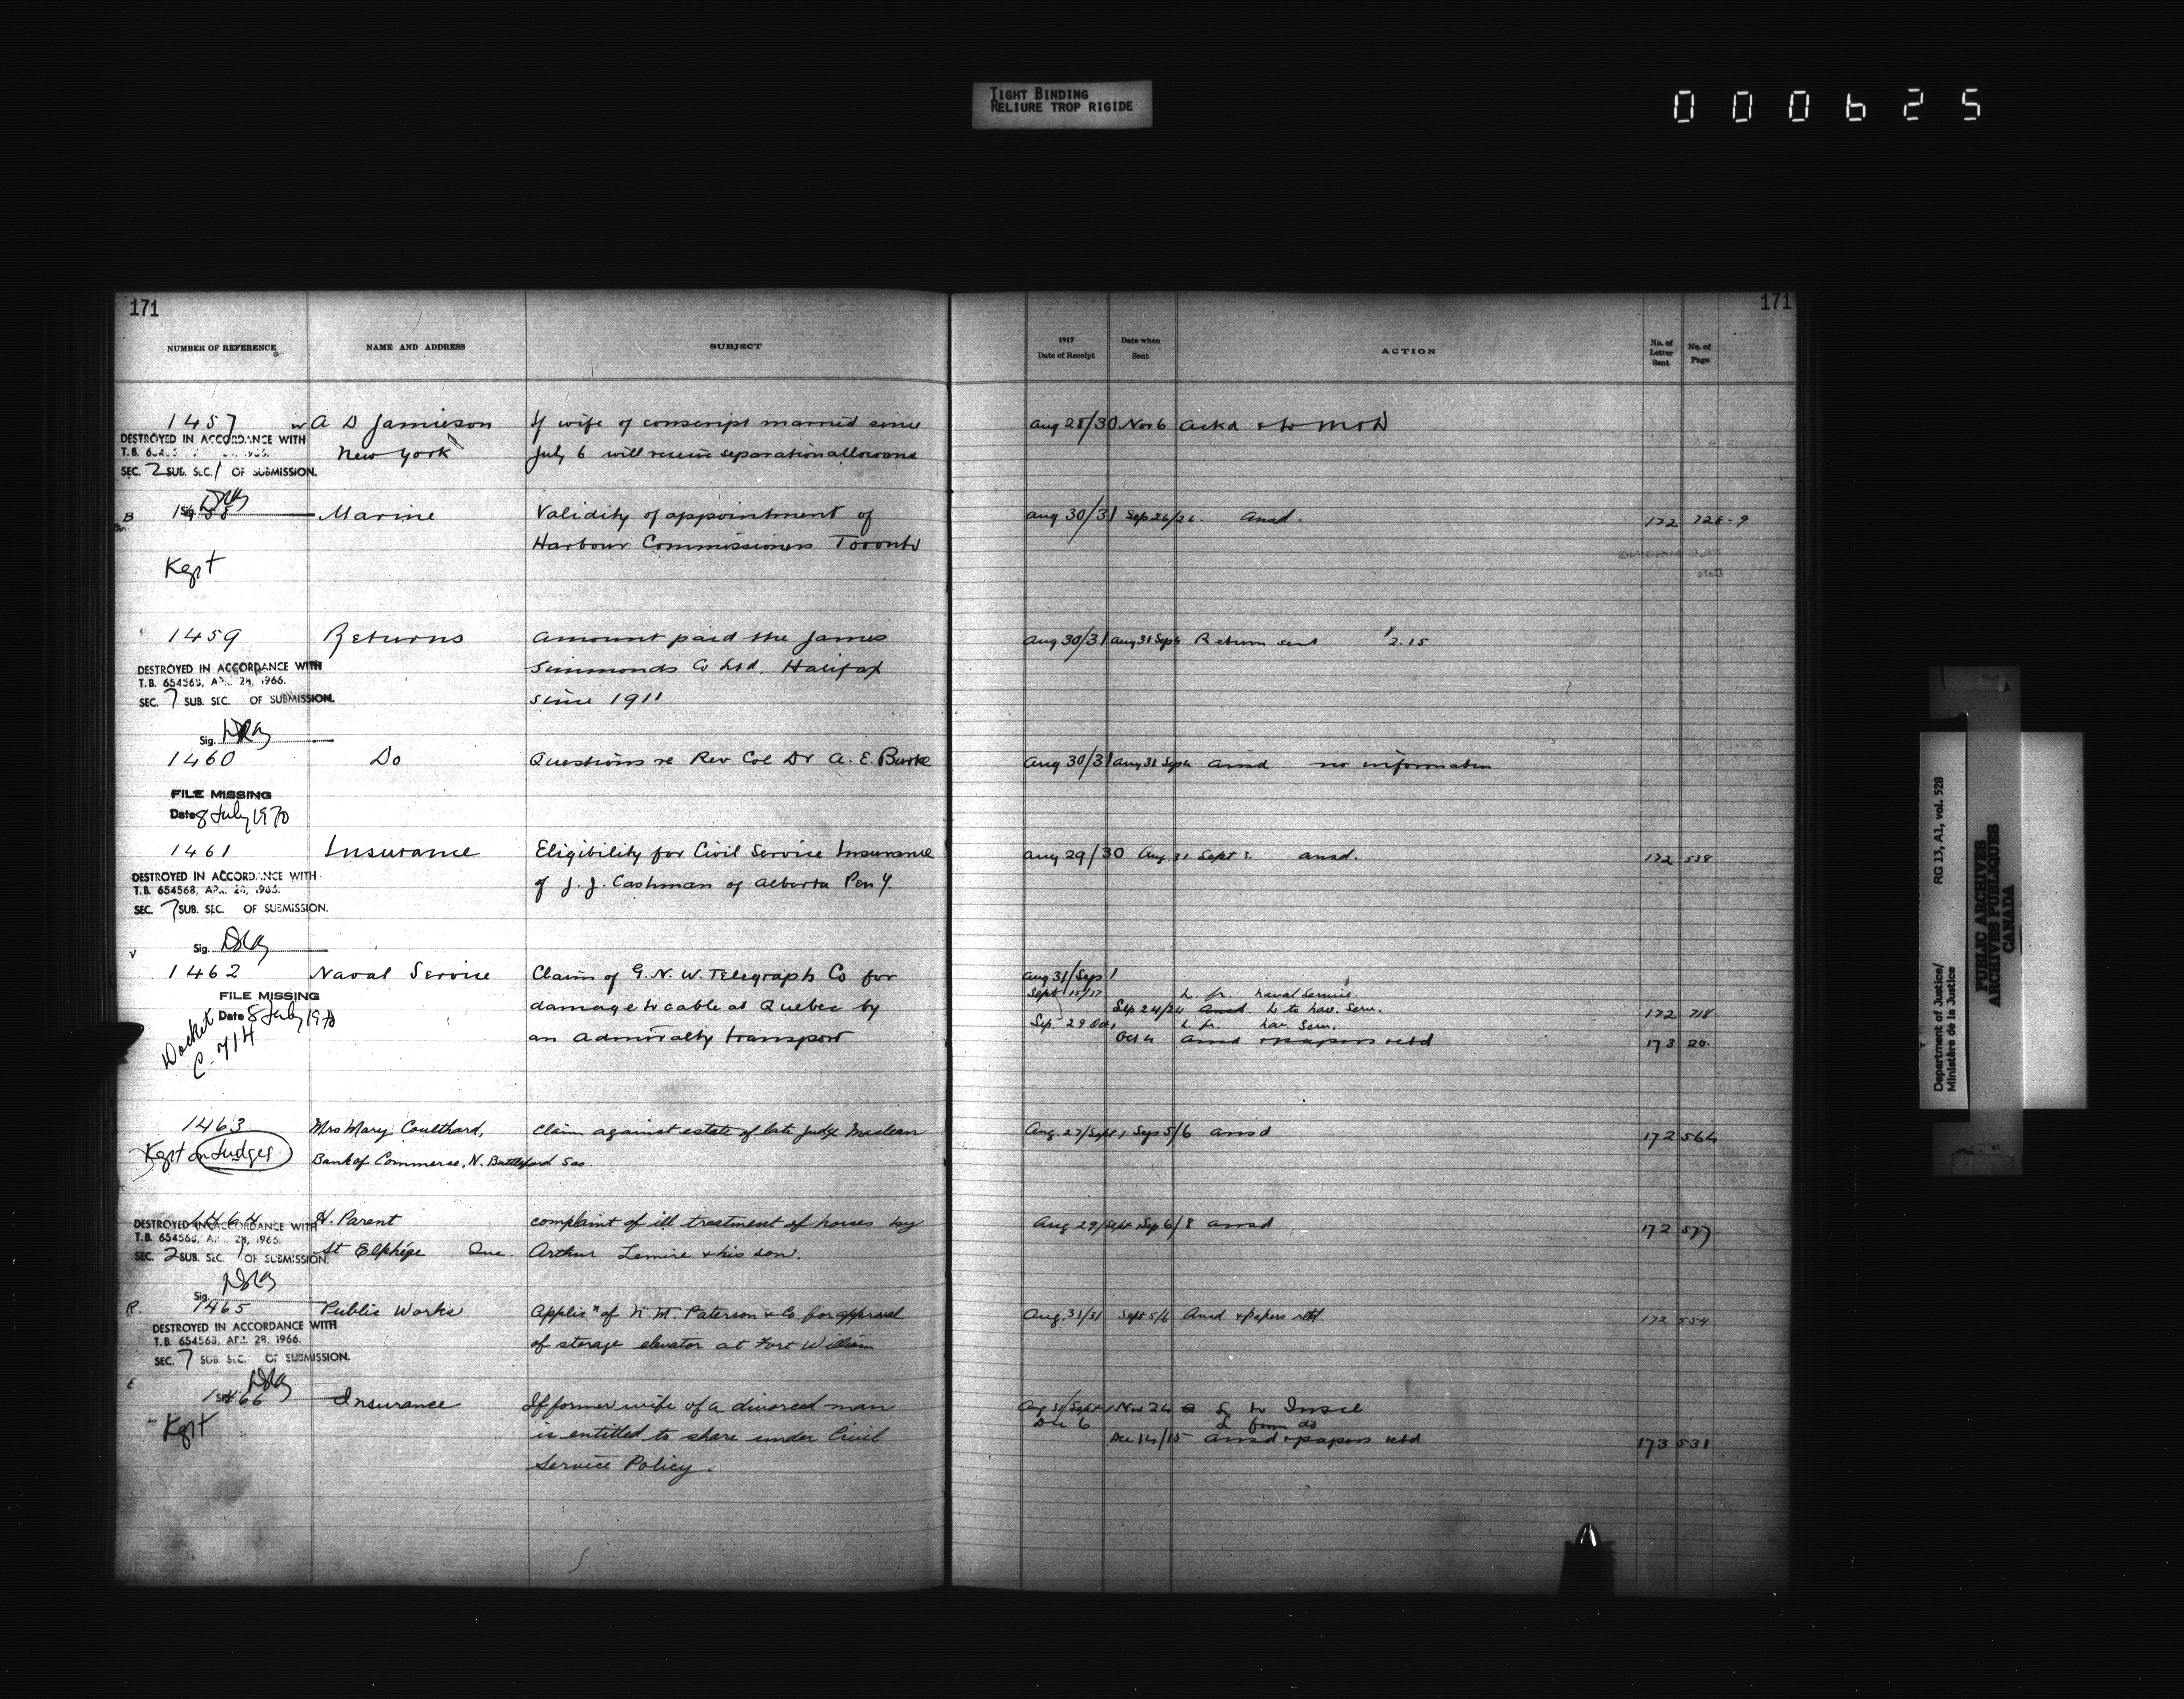 TIGHT BINDING
RELIURE TROP RIGIDE
000625
171
171
NUMBER OF REFERENCE NAME AND ADDRESS SUBJECT 1917 Date of Receipt Date when Sent ACTION No. of Letter Sent No. of Page
1457 A D Jamieson If wife of conscript married since Aug 28/30 Nov 6 Ackd & to M & D
DESTROYED IN ACCORDANCE WITH
New York July 6 will receive separation allowance
T.B.
SEC. 2 SUB. SEC. 1 OF SUBMISSION.
Sig.
B 1458 Marine Validity of appointment of Aug 30/31 Sep 26/26. Ansd. 172 728-9
Harbour Commissioners Toronto
Kept
1459 Returns Amount paid the James Aug 30/31 Aug 31 Sep 4 Return sent $2.15
DESTROYED IN ACCORDANCE WITH
Simmonds Co Ltd. Halifax
T.B. 654568, APL. 28, 1966.
SEC. 7 SUB. SEC. OF SUBMISSION.
since 1911
Sig.
1460 Do Questions re Rev Col Dr A. E. Burke Aug 30/31 Aug 31 Sep 4 Ansd no information
FILE MISSING
Date 8 July 1970
1461 Insurance Eligibility for Civil Service Insurance Aug 29/30 Aug. 31 Sept 3. ansd. 172 538
DESTROYED IN ACCORDANCE WITH
of J. J. Cashman of Alberta Pen'y.
T.B. 654568, APL. 28, 1966.
SEC. 7 SUB. SEC. OF SUBMISSION.
Sig.
1462 Naval Service Claim of G. N. W. Telegraph Co for Aug 31/Sep 1
Sept 15/17 L. fr. Naval Service.
FILE MISSING
Date 8 July 1970
damage to cable at Quebec by Sep 24/24 Ansd. L to Nav. Serv. 172 718
Sep. 29 Oct 1 L. fr. Nav. Serv.
Docket
C. 714
an Admiralty transport Oct 4 Ansd & papers retd 173 20.
1463 Mrs Mary Coulthard, Claim against estate of late Judge Maclean Aug. 27/Sept 1 Sep 5/6 ansd 172 564
Kept on Judges.
Bank of Commerce, N. Battleford Sas.
1464 H. Parent complaint of ill treatment of horses by Aug 29/Sept 1 Sep 6/8 ansd 172 577
DESTROYED IN ACCORDANCE WITH
T.B. 654568, APL. 28, 1966.
St Elphége Que. Arthur Lemire & his son.
SEC. 2 SUB. SEC. 1 OF SUBMISSION.
Sig.
R. 1465 Public Works Applic'n of N. M. Paterson & Co. for approval Aug. 31/31 Sept 5/6 Ansd & papers retd 172 554
DESTROYED IN ACCORDANCE WITH
T.B. 654568, APL. 28, 1966.
of storage elevator at Fort William
SEC. 7 SUB. SEC. OF SUBMISSION.
1466 Insurance If former wife of a divorced man Aug 31/Sept 1 Nov 24 L to Insce
Dec 6 L from do
Kept
is entitled to share under Civil Dec 14/15 ansd & papers retd 173 531
Service Policy.
Department of Justice/
Ministère de la Justice
RG 13, A1, vol. 528
PUBLIC ARCHIVES
ARCHIVES PUBLIQUES
CANADA